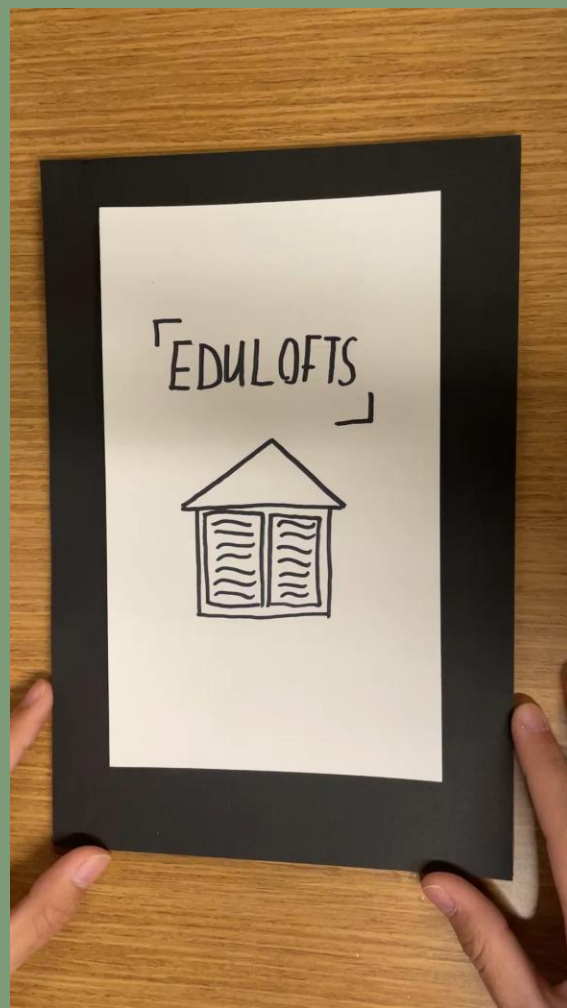 「EDULOFTS」